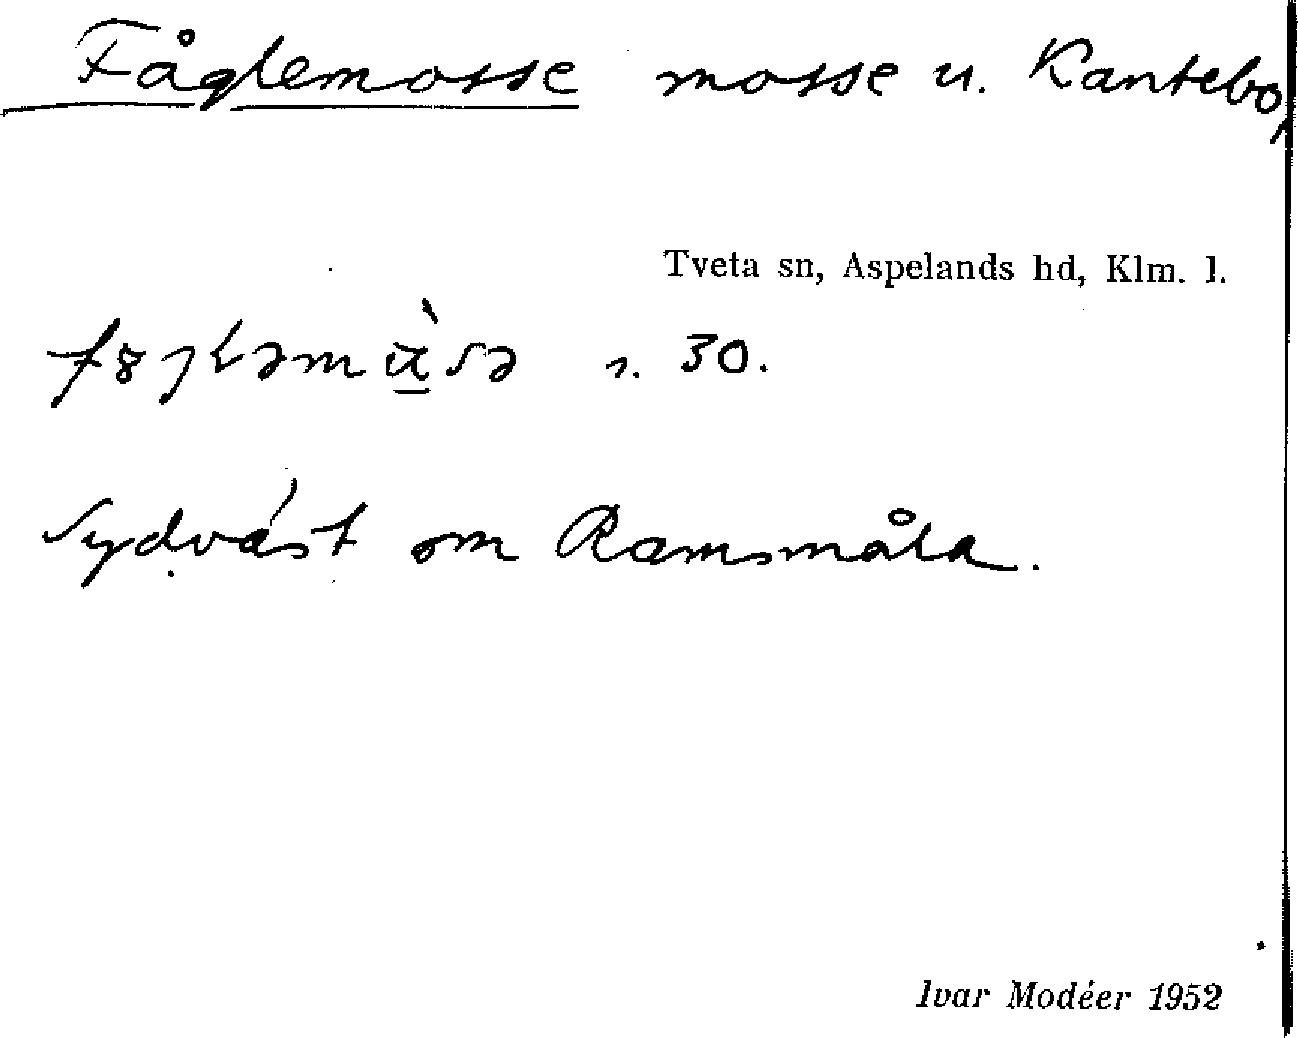 Fåglemosse mosse u. Kantebo,
Tveta sn, Aspelands hd, Klm. l.
30.
Sydväst om Ramsmåla.
Ivar Modéer 1952